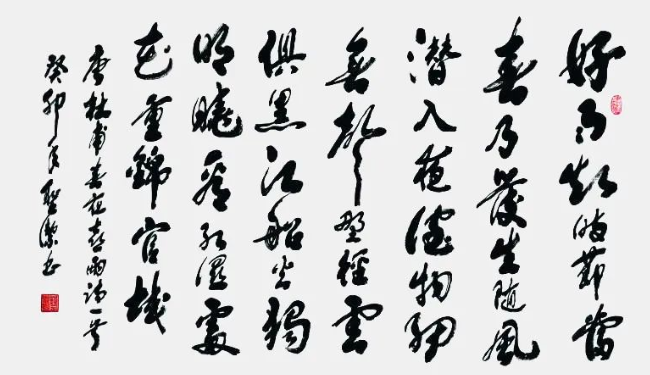 好雨知時節當
春乃發生隨風
潜入夜潤物細
無聲野徑雲
俱黑江船火獨
明曉看紅濕處
花重錦官城
唐杜甫春夜喜雨詩一首
癸卯年聖潔書